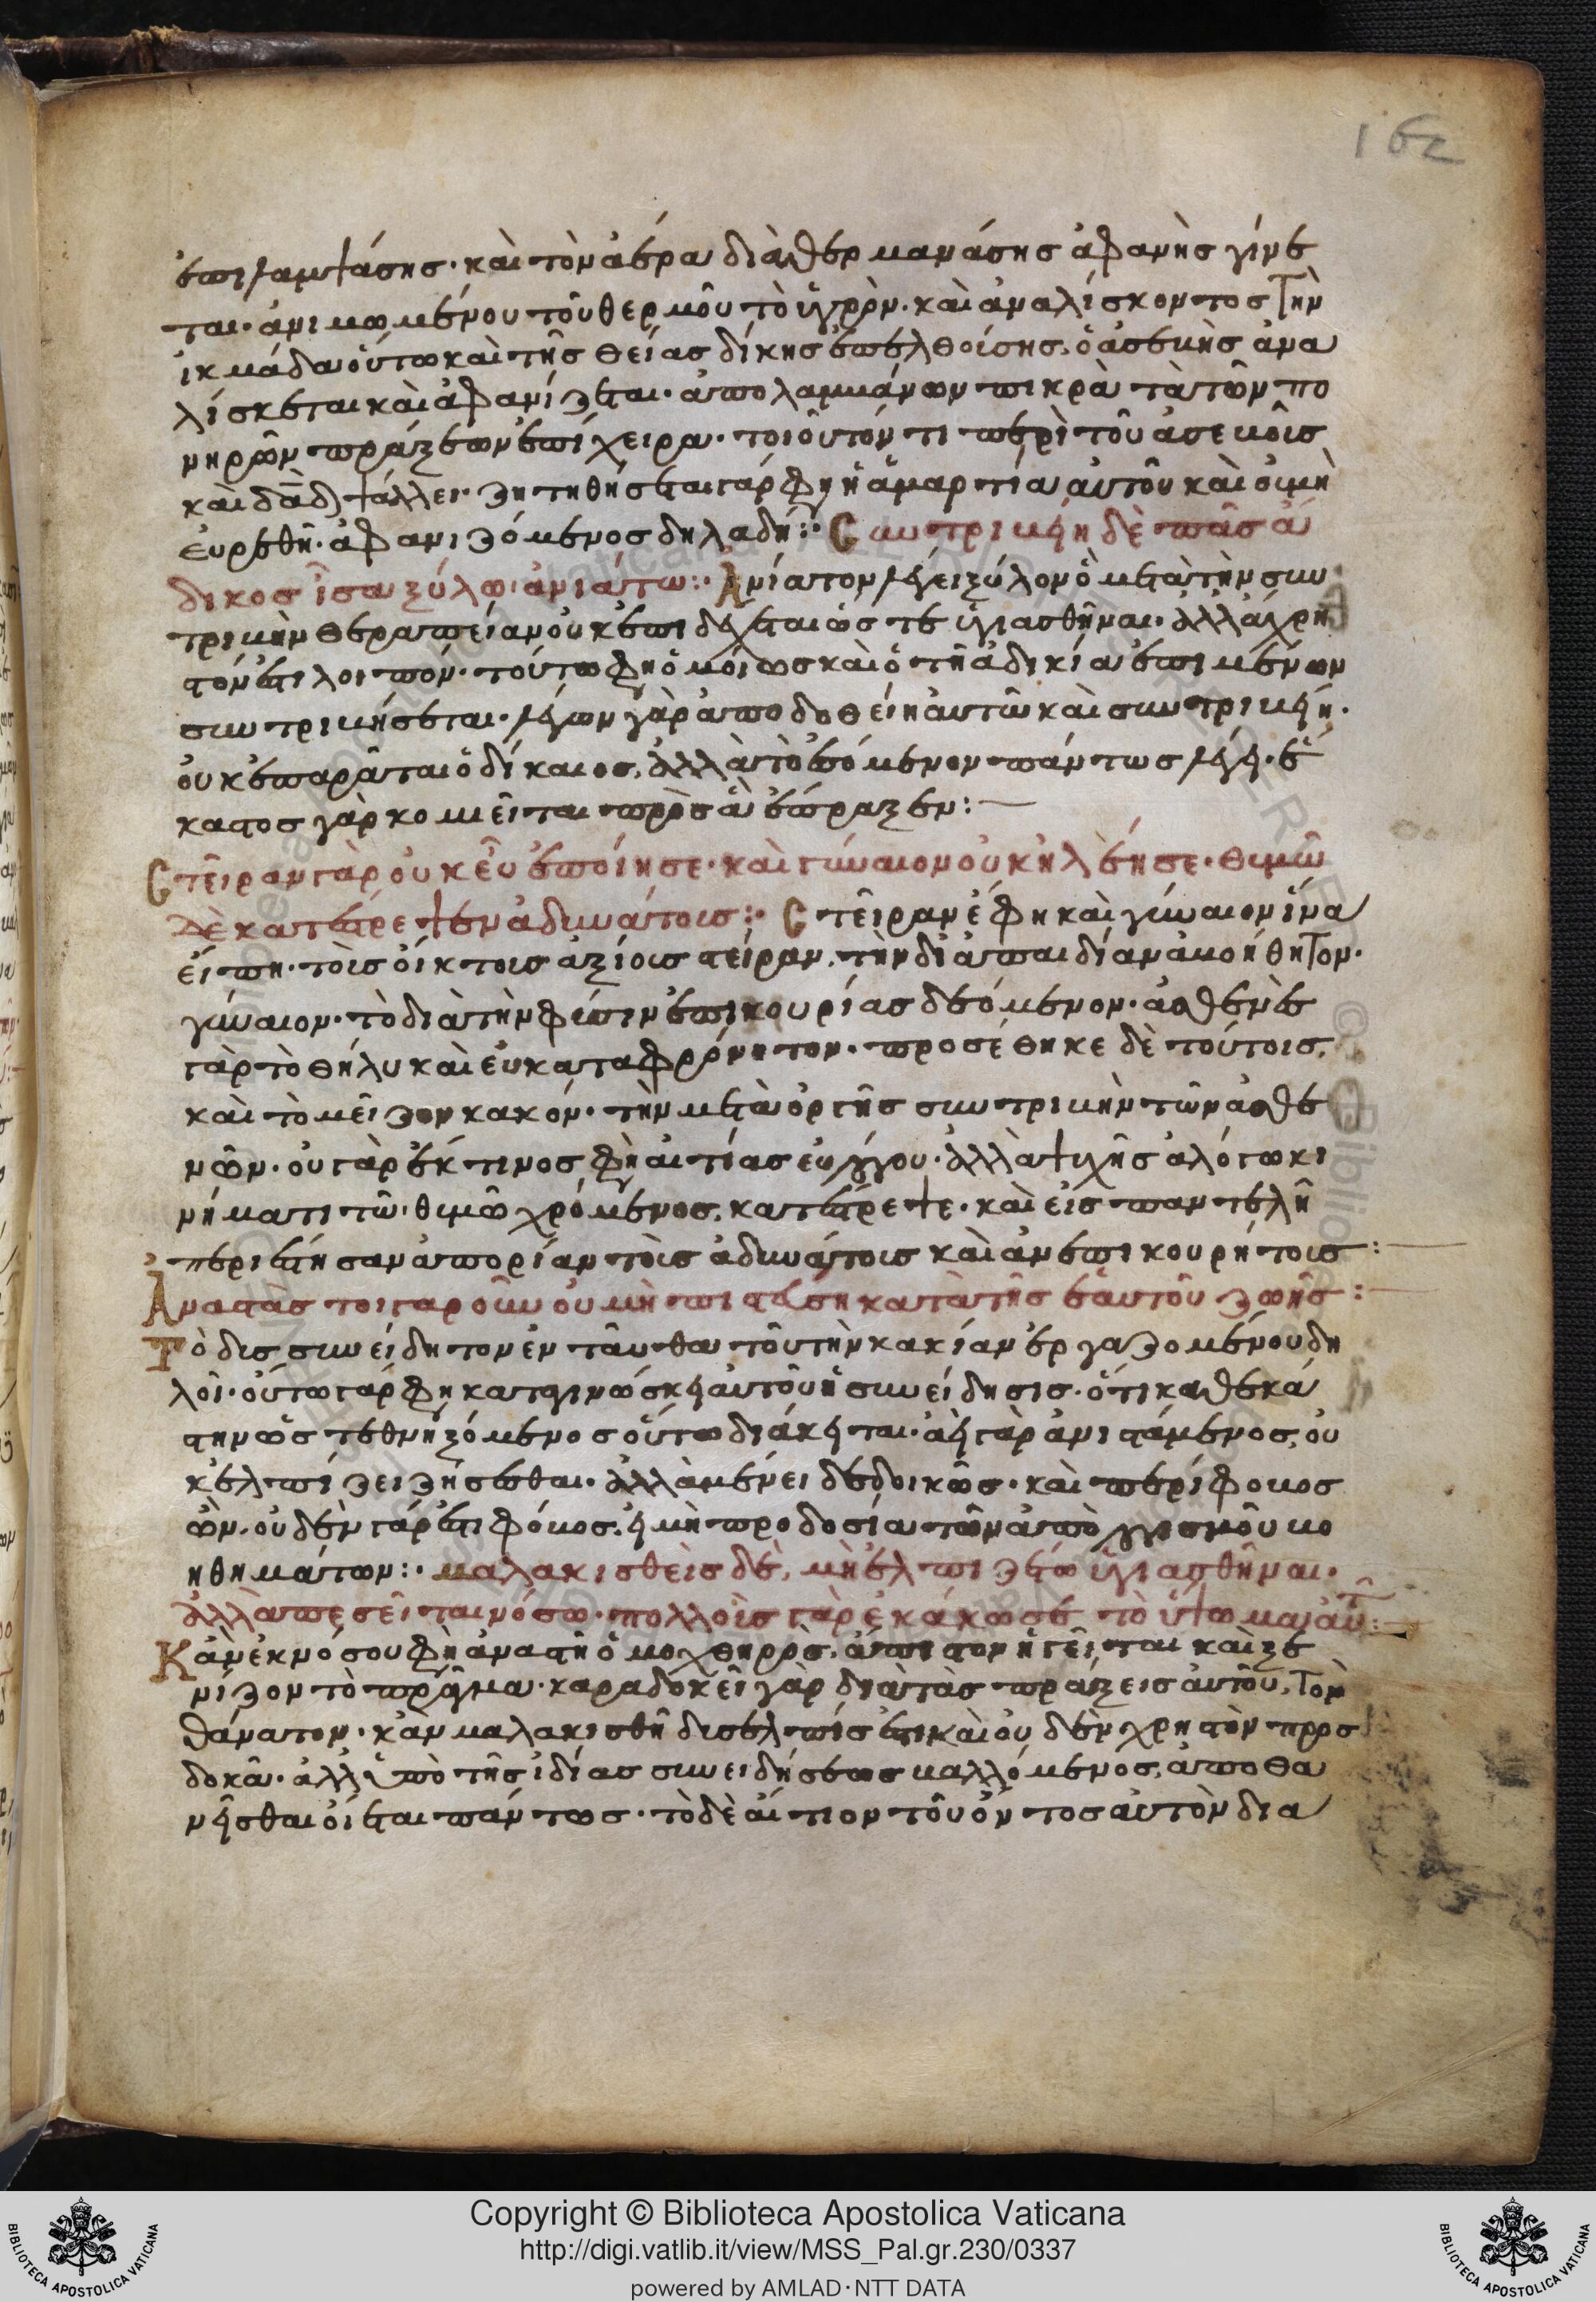 162
ἐπιλαμψάσης· καὶ τὸν ἀέρα διαθερμανάσης ἀφανὴς γίνε
ται· ἀνιμωμένου τοῦ θερμοῦ τὸ ὑγρὸν· καὶ ἀναλίσκοντος τὴν
ἰκμάδα οὕτω καὶ τῆς θείας δίκης ἐπελθούσης, ὁ ἀσεβὴς ἀνα
λίσκεται καὶ ἀφανίζεται· ἀπολαμβάνων πικρὰ τὰ τῶν πο
νηρῶν πράξεων ἐπίχειρα· τοιοῦτόν τι περὶ τοῦ ἀσεβοῦς
καὶ δᾱδ ψάλλει· ζητηθήσεται γάρ φη ἡ ἁμαρτία αὐτοῦ καὶ οὐ μὴ
εὑρεθῆ· ἀφανιζόμενος δηλαδή:· Συντριβείη δὲ πᾶς ἄ
δικος ἴσα ξύλω ἀνιάτω:· Ἀνίατον λέγει ξύλον ὃ μετὰ τὴν συν
τριβὴν θεραπείαν οὐκ ἐπιδέχεται ὥστε ὑγιασθῆναι· ἀλλ' ἄχρη
στόν ἐστι λοιπόν· τούτω φη ὁμοίως καὶ ὁ τῆ ἀδικία ἐπιμένων
συντριβήσεται· λέγων γὰρ ἀποδοθείη αὐτῶ καὶ συντριβείη·
οὐκ ἐπαρᾶται ὁ δίκαιος, ἀλλὰ τὸ ἑπόμενον πάντως λέγει· ἕ
καστος γὰρ κομιεῖται πρὸς ἃ ἔπραξεν:
Στεῖραν γὰρ οὐκ εὖ ἐποίησε· καὶ γύναιον οὐκ ἠλέησε· θυμῶ
δὲ κατέστρεψεν ἀδυνάτους:· Στεῖραν ἔφη καὶ γύναιον ἵνα
εἴπη· τοῖς οἴκτοις ἀξίοις στεῖραν, τὴν δι' ἀπαιδίαν ἀβοήθητον·
γύναιον· τὸ διὰ τὴν φύσιν ἐπικουρίας δεόμενον· ἀσθενὲς
γὰρ τὸ θῆλυ καὶ εὐκαταφρόνητον· προσέθηκε δὲ τούτοις,
καὶ τὸ μεῖζον κακόν· τὴν μετὰ ὀργῆς συντριβὴν τῶν ἀσθε
νῶν· οὐ γὰρ ἔκ τινος φη αἰτίας εὐλόγου· ἀλλὰ ψυχῆς ἀλόγω κι
νήματι τῶ θυμῶ χρώμενος, κατέστρεψε· καὶ εἰς παντελῆ
περιέστησαν ἀπορίαν τοῖς ἀδυνάτοις καὶ ἀνεπικουρήτοις:
Ἀναστὰς τοιγαροῦν οὐ μὴ πιστεύση κατὰ τῆς ἑαυτοῦ ζωῆς:
Τὸ δυσσυνείδητον ἐνταῦθα τοῦ τὴν κακίαν ἐργαζομένου δη
λοῖ· οὕτω γάρ φη καταγινώσκει αὐτοῦ ἡ συνείδησις· ὅτι καθ' ἑκά
στην ὡς τεθνηξόμενος οὕτω διάκειται· ἀεὶ γὰρ ἀνιστάμενος, οὐ
κ ἐλπίζει ζήσεσθαι· ἀλλὰ μένει δεδοικὼς· καὶ περίφοβος
ὢν· οὐδὲν γάρ ἐστι φόβος, εἰ μὴ προδοσία τῶν ἀπὸ λογισμοῦ βο
ηθημάτων:· μαλακισθεὶς δὲ, μὴ ἐλπιζέτω ὑγιασθῆναι·
ἀλλὰ πεσεῖται νόσω· πολλοὺς γὰρ ἐκάκωσε τὸ ὕψωμα αὐτοῦ:
Κἂν ἐκ νόσου φη ἀναστῆ ὁ μοχθηρὸς, ἄπιστον ἡγεῖται καὶ ξε
νίζον τὸ πρᾶγμα· καραδοκεῖ γὰρ διὰ τὰς πράξεις αὐτοῦ, τὸν
θάνατον· κἂν μαλακισθῆ δυσελπίς ἐστι καὶ οὐδὲν χρηστὸν προσ
δοκᾶ· ἀλλ' ὑπὸ τῆς ἰδίας συνειδήσεως βαλλόμενος, ἀποθα
νεῖσθαι οἴεται πάντως· τὸ δὲ αἴτιον τοῦ ὄντος αὐτὸν δια
Copyright © Biblioteca Apostolica Vaticana
http://digi.vatlib.it/view/MSS_Pal.gr.230/0337
powered by AMLAD·NTT DATA
BIBLIOTECA APOSTOLICA VATICANA
BIBLIOTECA APOSTOLICA VATICANA